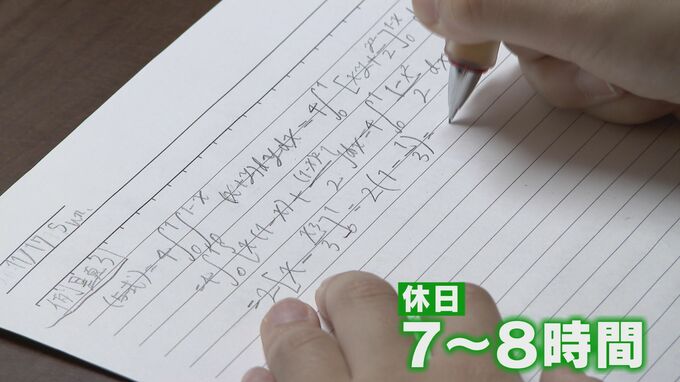 11/17 Sun.
(与式) = 4∫₀¹∫₀^{1-x} (x+y)dydx = 4∫₀¹ [xy + y²/2]₀^{1-x}
= 4∫₀¹ [x(1-x) + (1-x)²/2] dx = 4∫₀¹ (1-x²)/2 dx
= 2[x - x³/3]₀¹ = 2(1 - 1/3) =
休日
7〜8時間